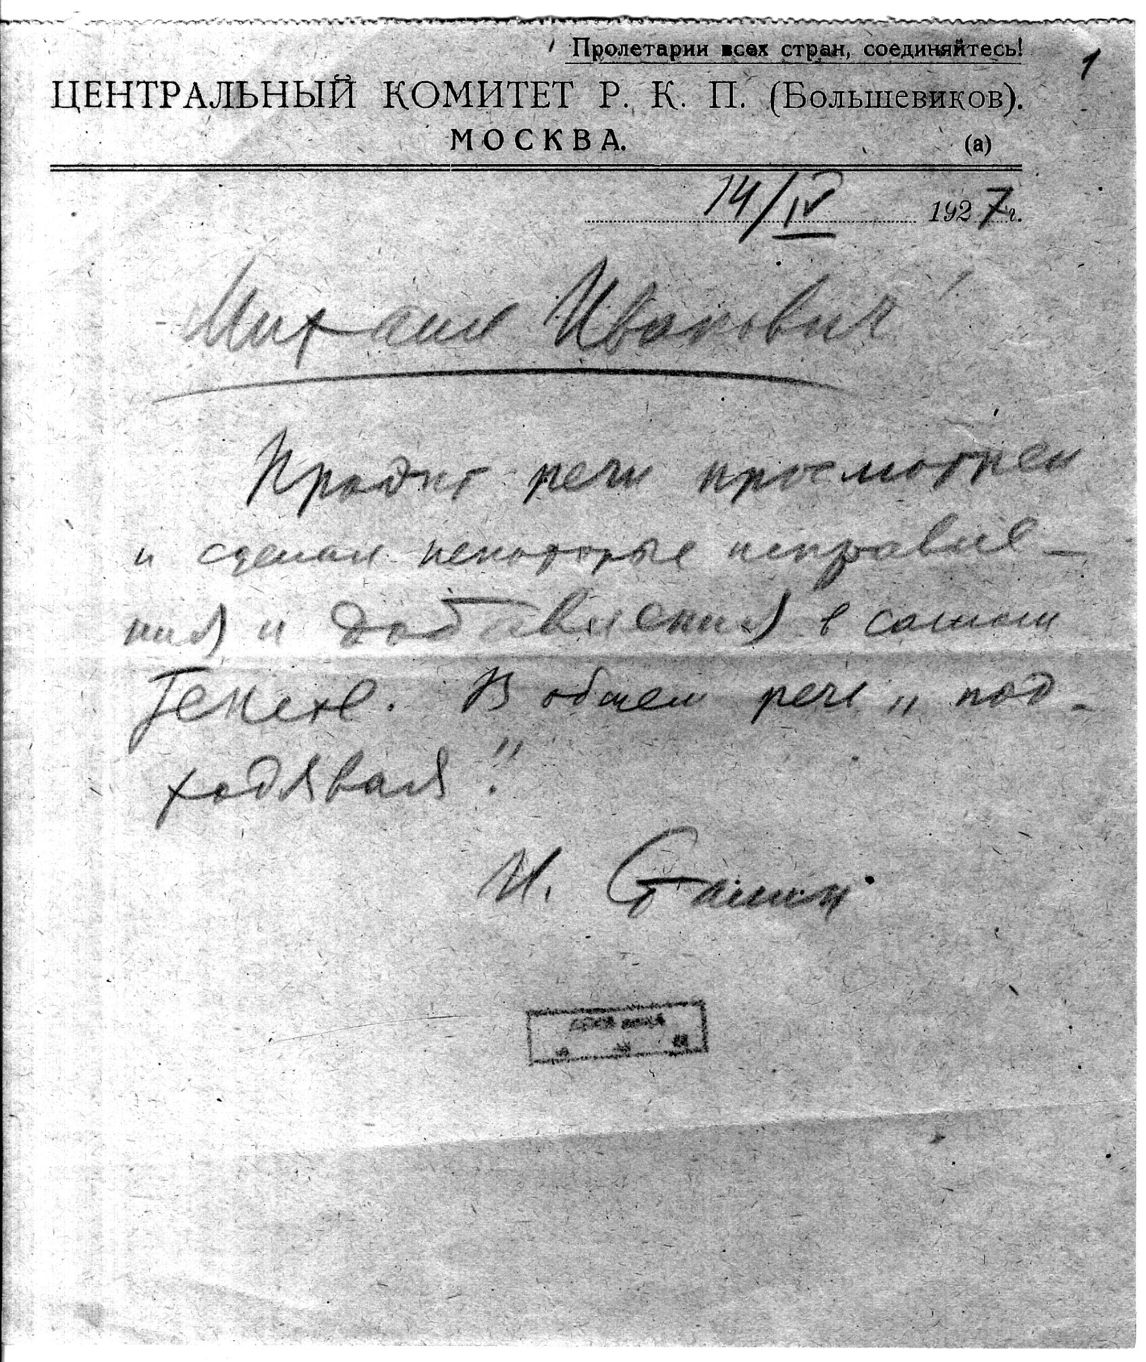 Пролетарии всех стран, соединяйтесь!
1
ЦЕНТРАЛЬНЫЙ КОМИТЕТ Р. К. П. (Большевиков).
МОСКВА.
(а)
14/IV 1927 г.
Михаил Иванович!
Проект речи просмотрел
и сделал некоторые исправле-
ния и добавления в самом
тексте. В общем речь „под-
ходявая".
И. Сталин.